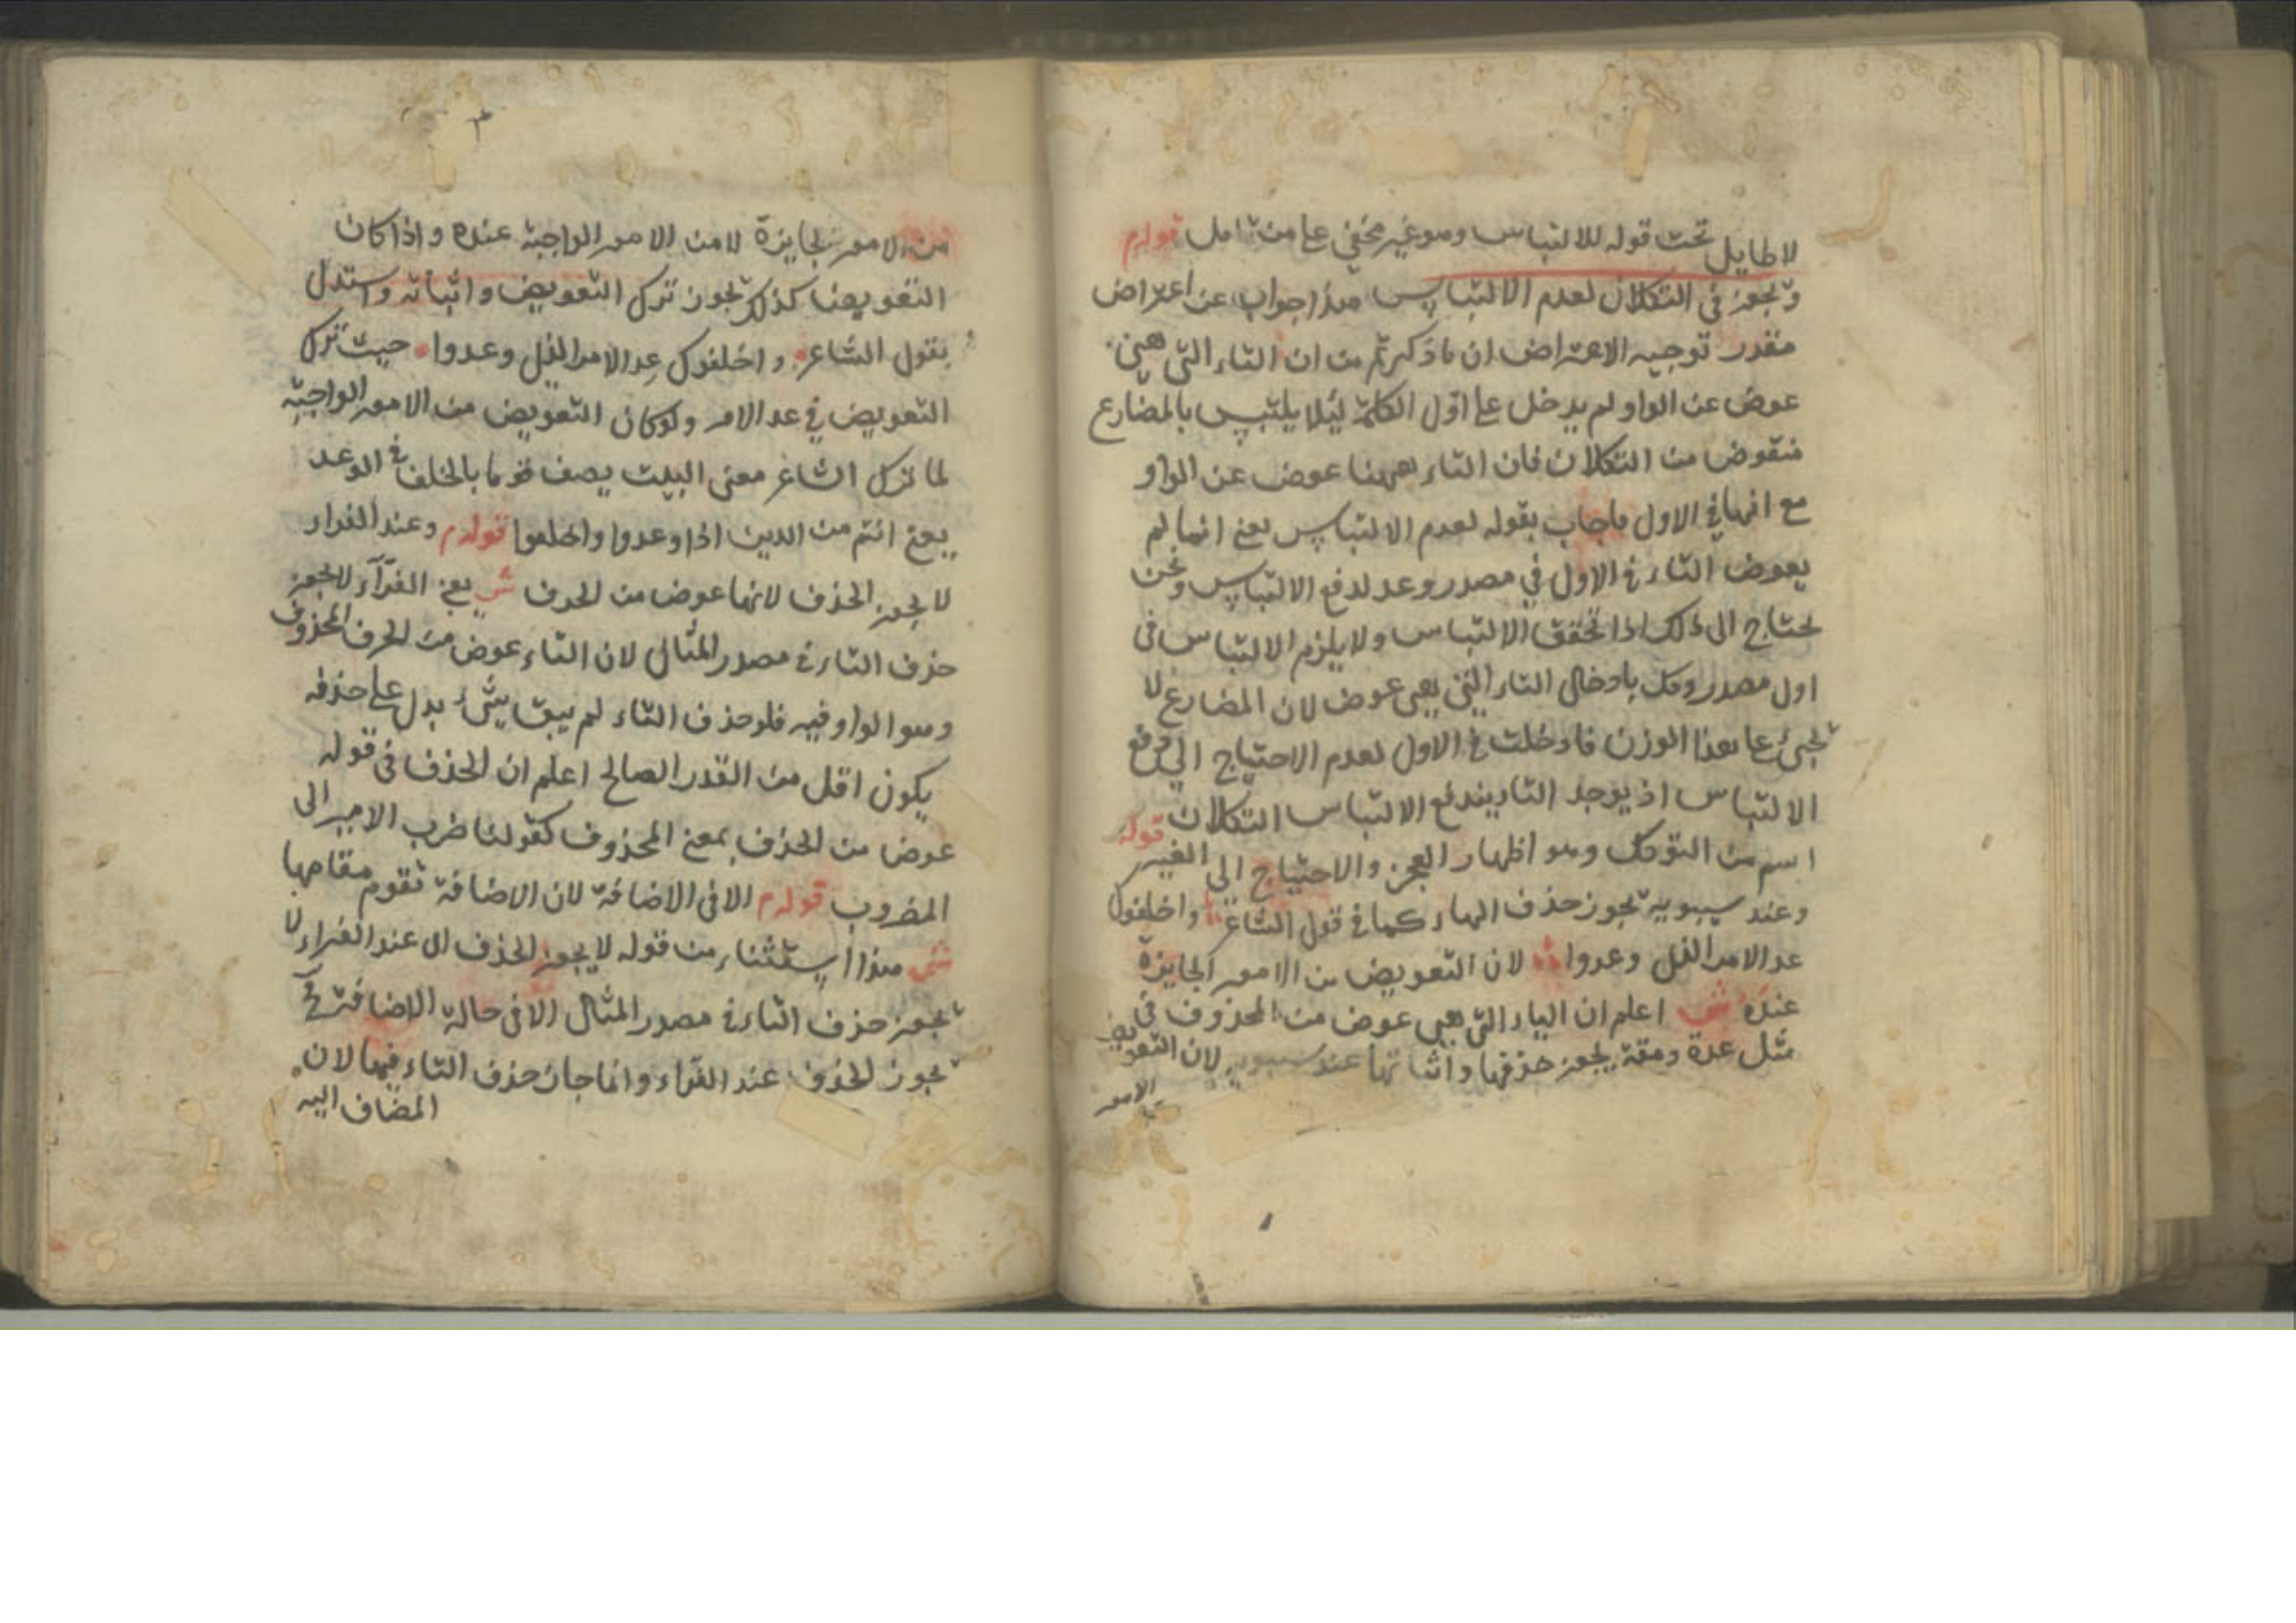 لا طايل تحت قوله للالتباس وهو غير مخفي على من تامل قوله م
ويجوز في التكلان لعدم الالتباس هذا جواب عن اعتراض
مقدر توجيه الاعتراض ان ما ذكرتم من ان التاء التي هي
عوض عن الواو لم يدخل على اول الكلمة ليلا يلتبس بالمضارع
منقوض من التكلان فان التاء ههنا عوض عن الواو
مع انها في الاول فاجاب بقوله لعدم الالتباس يعني انما لم
يعوض التاء في الاول في مصدر وعد لدفع الالتباس ونحن
نحتاج الى ذلك اذا تحقق الالتباس ولا يلزم الالتباس في
اول مصدر وكل بادخال التاء التي هي عوض لان المضارع لا
يجيء على هذا الوزن فادخلت في الاول لعدم الاحتياج الى دفع
الالتباس اذ يوجد التاء يندفع الالتباس التكلان
اسم من التوكل وهو اظهار العجز والاحتياج الى الغير قوله
وعند سيبويه يجوز حذف الهاء كما في قول الشاعر واخلفوك
عد الامر الذي وعدوا لان التعويض من الامور الجايزة
عنده ش اعلم ان الياء التي هي عوض من المحذوف في
مثل عدة ومقة يجوز حذفها واثباتها عند سيبويه لان التعويض
الامور
من الامور الجايزة لا من الامور الواجبة عنده واذا كان
التعويضنا كذلك يجوز ترك التعويض واثباته واستدل
بقول الشاعر واخلفوك عد الامر الذي وعدوا حيث ترك
التعويض في عد الامر ولو كان التعويض من الامور الواجبة
لما ترك الشاعر معنى البيت يصف قوما بالخلف في الوعد
يعني انتم من الذين اذا وعدوا واخلفوا قوله م وعند الفراء
لا يجوز الحذف لانها عوض من الحرف ش يعني الفرآء لا يجوز
حذف التاء في مصدر المثال لان التاء عوض من الحرف المحذوف
وهو الواو فيه فلو حذف التاء لم يبق شيء يدل على حذفه
يكون اقل من القدر الصالح اعلم ان الحذف في قوله
عوض من الحذف بمعنى المحذوف كقولنا ضرب الامير الى
المضروب قوله م الا في الاضافة لان الاضافة تقوم مقامها
ش هذا استثناء من قوله لا يجوز الحذف اى عند الفراء لا
يجوز حذف التاء في مصدر المثال الا في حالة الاضافة
يجوز الحذف عند الفراء وانما جاز حذف التاء فيها لان
المضاف اليه